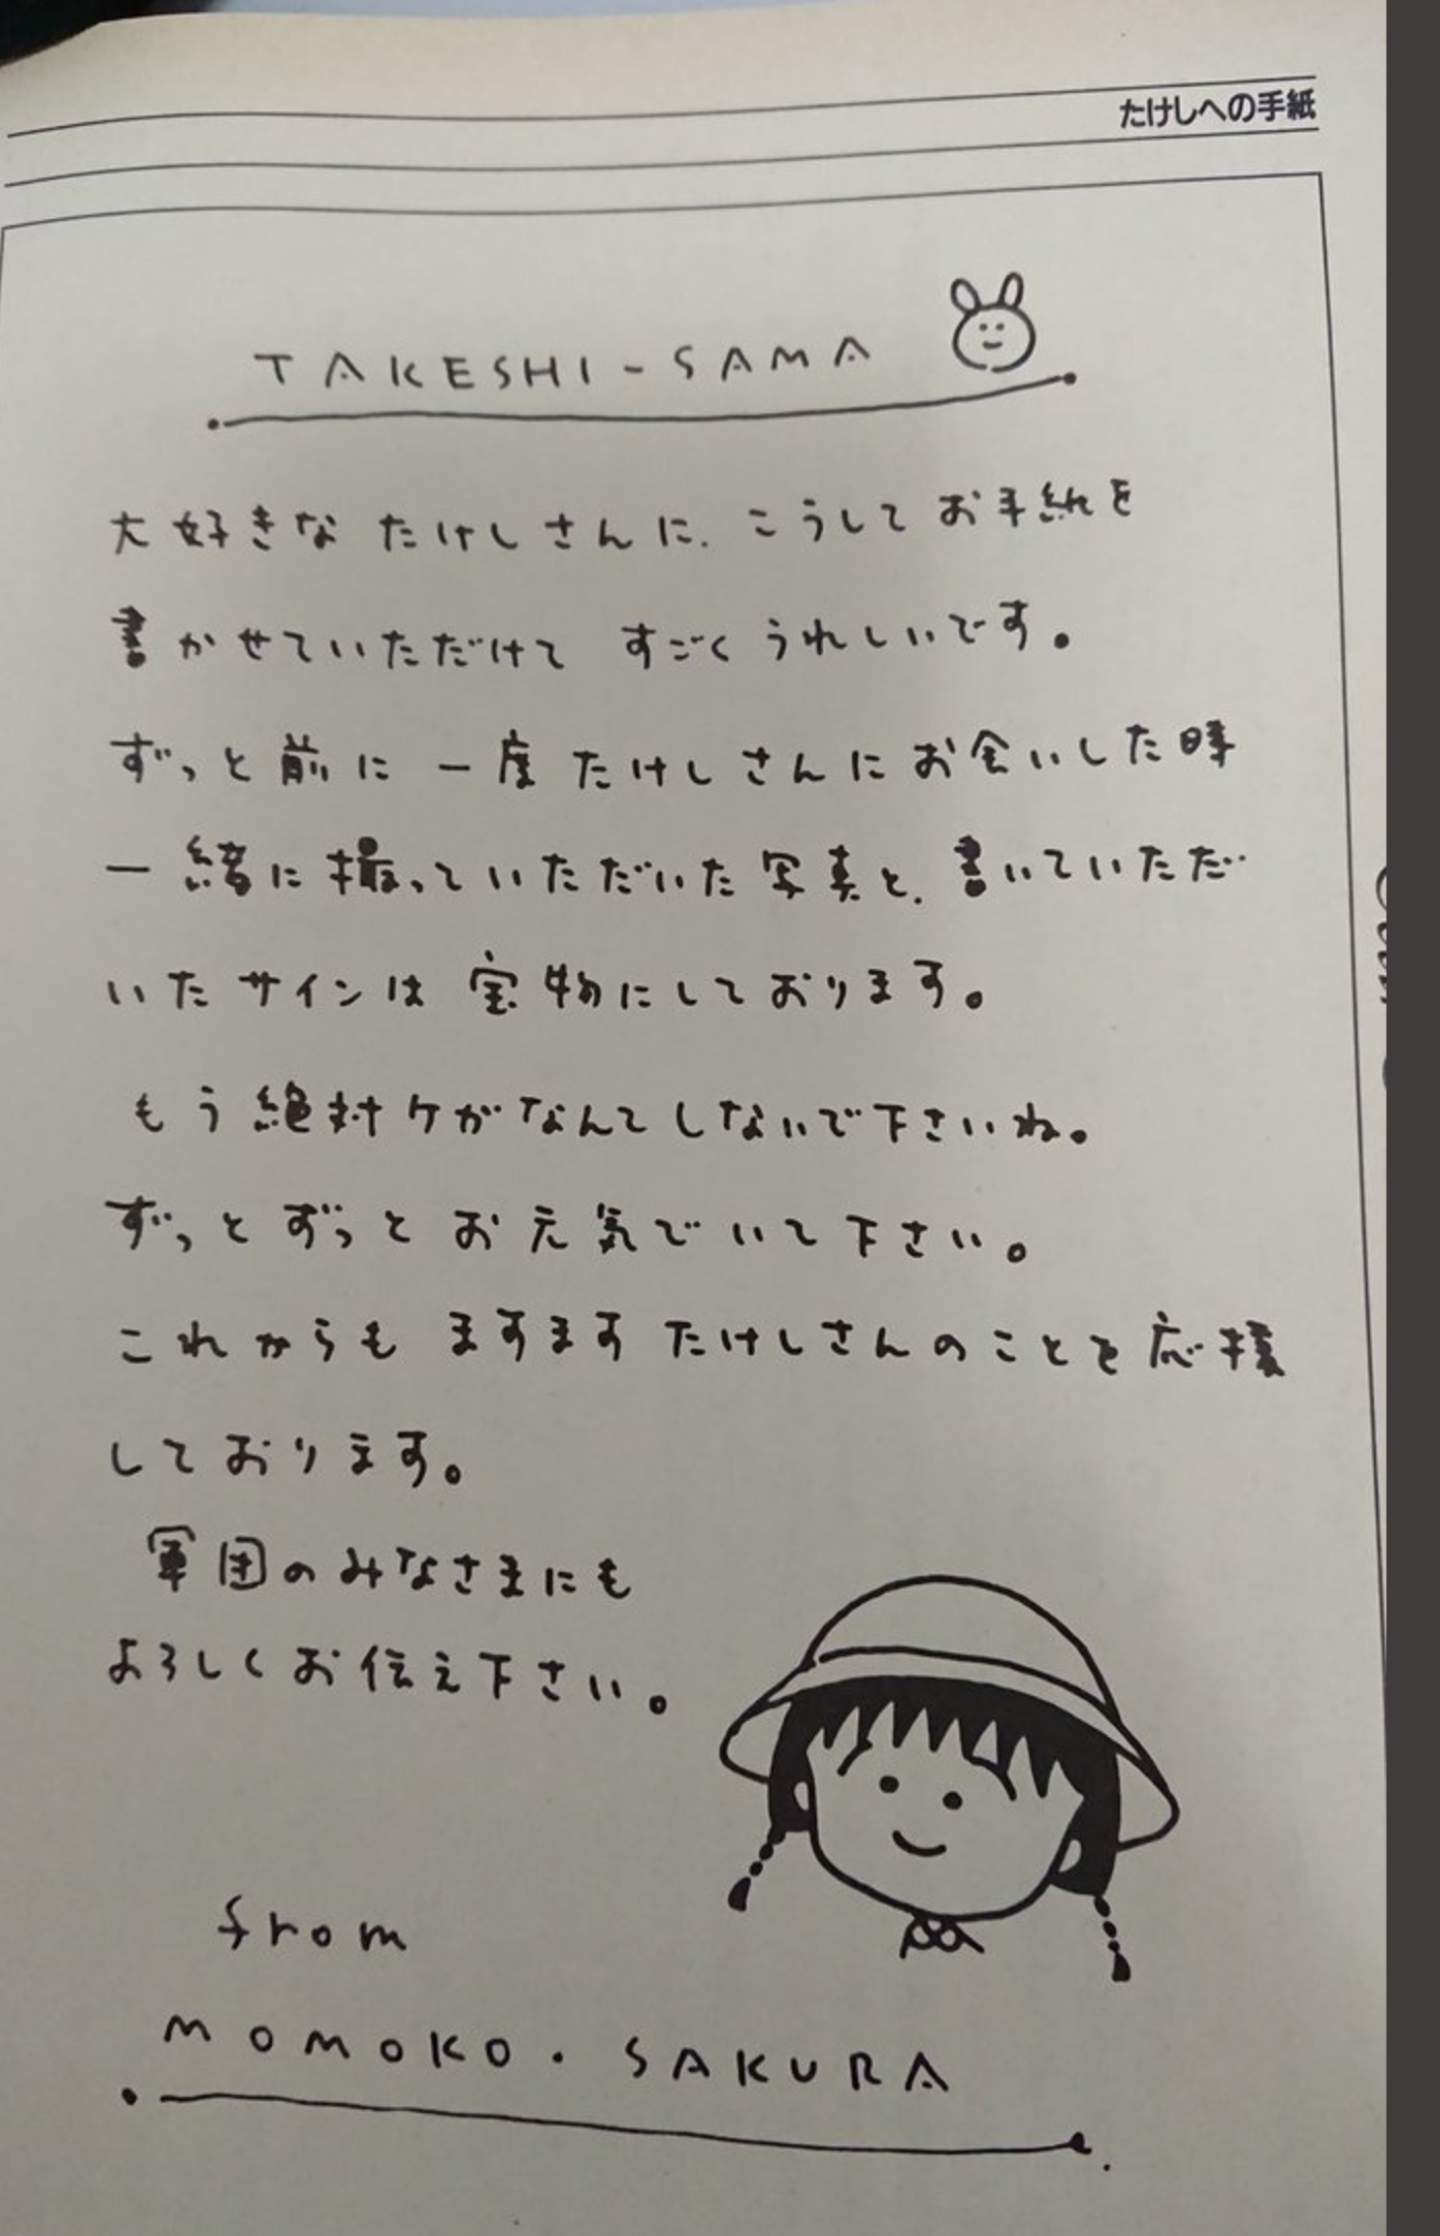 たけしへの手紙
TAKESHI-SAMA
大好きな たけしさんに、こうして お手紙を
書かせていただけて すごく うれしいです。
ずっと前に 一度 たけしさんに お会いした時
一緒に撮っていただいた 写真と、書いていただ
いた サインは 宝物にしております。
もう絶対ケガなんて しないで下さいね。
ずっと ずっと お元気で いて 下さい。
これからも ますます たけしさんのことを 応援
しております。
軍団のみなさまにも
よろしく お伝え下さい。
from
MOMOKO・SAKURA